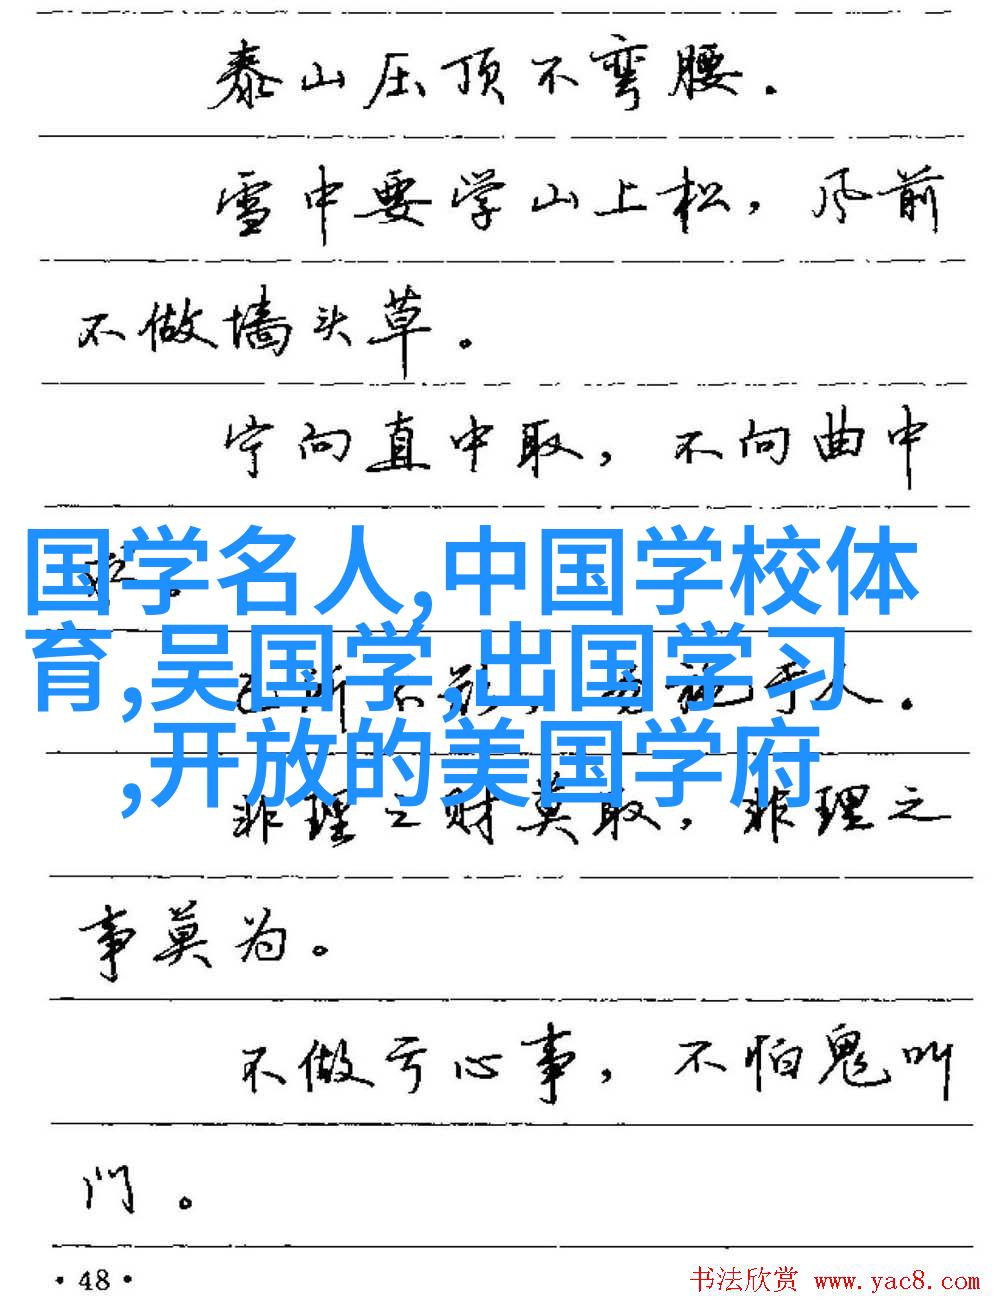 泰山压顶不弯腰.
雪中要学山上松，风前
不做墙头草。
宁向直中取，不向曲中
国学名人,中国学校体
育,吴国学,出国学习
于人.
,开放的美国学府
非理之财莫取，非理之
事莫为。
不做亏心事，不怕鬼叫
门。
·48·
书法欣赏 www.yac8.com